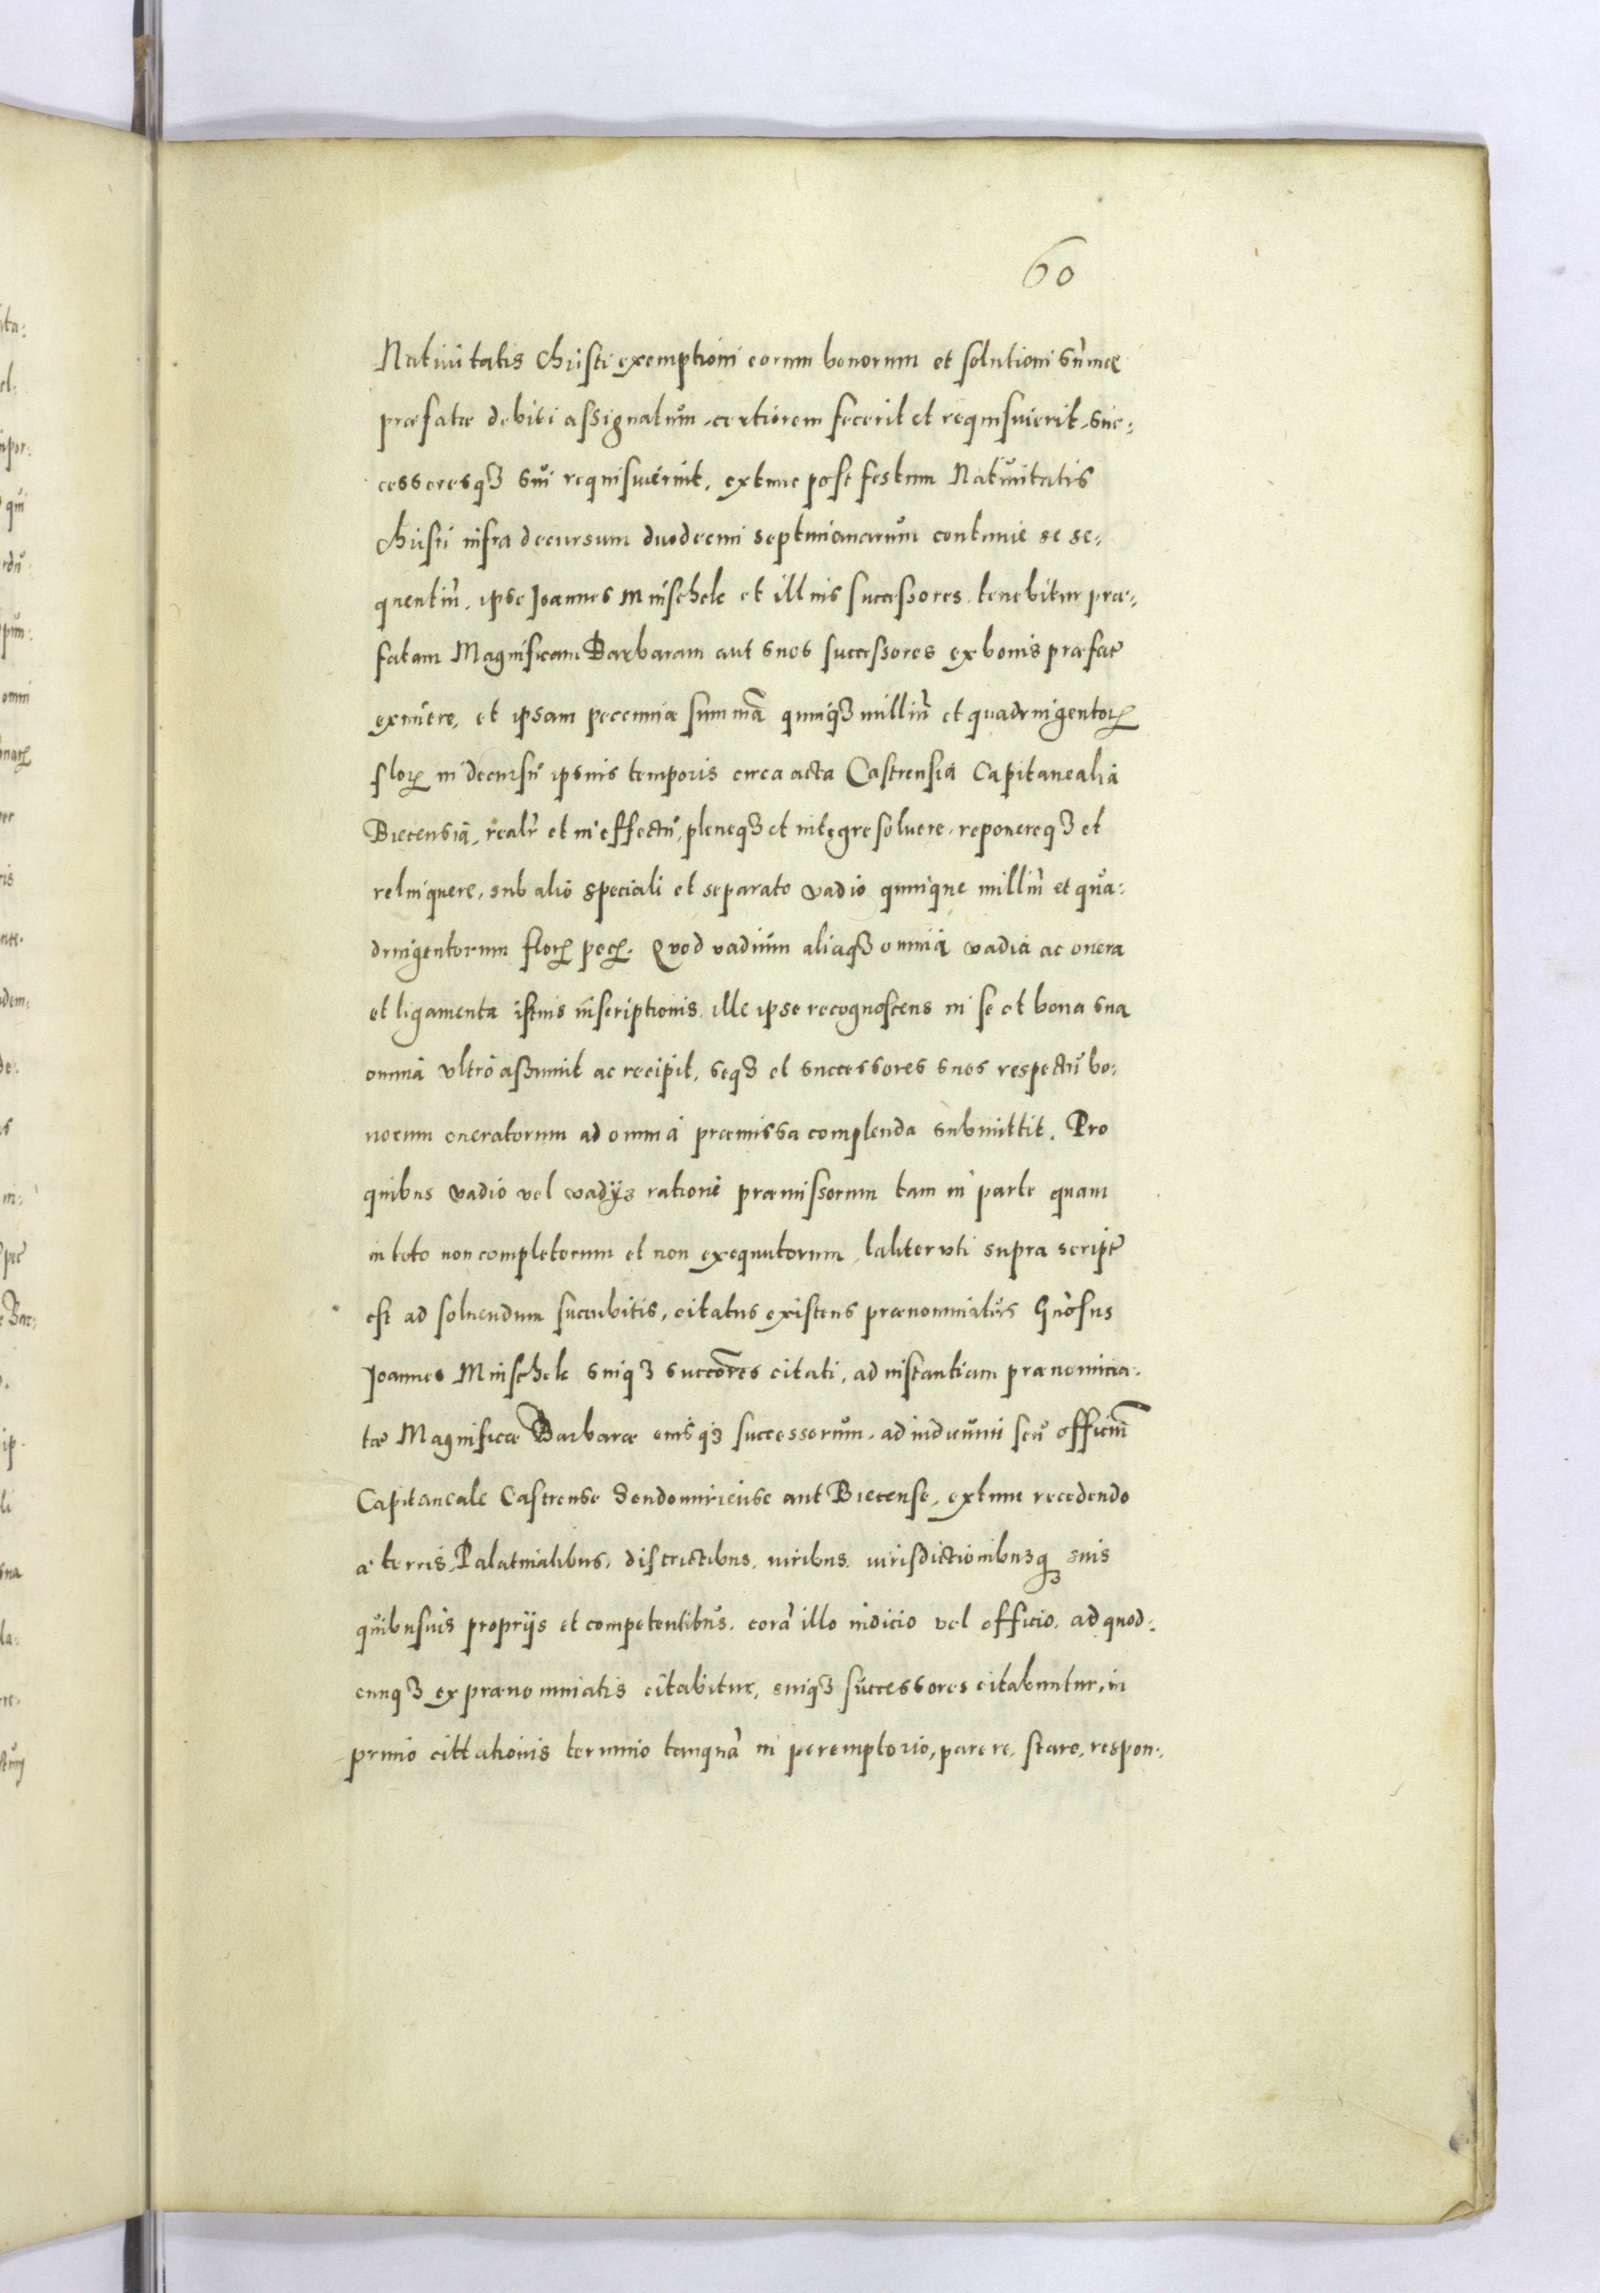 60
Nativitatis Christi exemptioni eorum bonorum et solutioni sum̃ae
præfatæ debiti assignatum, certiorem fecerit et requisuierit, suc:
cessoresqꝫ sui requisuierint, extunc post festum Nativitatis
Christi infra decursum duodecim septimanarum continue se se:
quentiũ, ipse Joannes Minschele et illius successores tenebitur præ:
fatam Magnificam Barbaram aut suos successores ex bonis præfat̃
eximere, et ipsam pecuniæ summã quinqꝫ milliũ et quadringentoꝝ
floꝝ in decursu ipsius temporis circa acta Castrensia Capitanealia
Biecensia, realr̃ et in effectu, pleneqꝫ et integre soluere, reponereqꝫ et
relinquere, sub alio speciali et separato vadio quinque milliũ et qua:
dringentorum floꝝ pecꝝ. Quod vadium aliaqꝫ omnia vadia ac onera
et ligamenta istius inscriptionis, ille ipse recognoscens in se et bona sua
omnia ultro assumit ac recipit, seqꝫ et successores suos respectu bo:
norum oneratorum ad omnia præmissa complenda submittit. Pro
quibus vadio vel vadijs ratione præmissorum tam in parte quam
in toto non completorum et non exequutorum, taliter uti supra script̃
est ad soluendum succubitis, citatus existens prænominatus Gñosus
Joannes Minschele suiqꝫ succ̃ores citati, ad instantiam prænomina:
tæ Magnificæ Barbaræ eiusqꝫ successorum, ad iudicium seu officiũ
Capitaneale Castrense Sendomiriense aut Biecense, extunc recedendo
a terris, Palatinatibus, districtibus, iuribus, iurisdictionibusqꝫ suis
quibusuis proprijs et competentibus, corã illo iudicio vel officio, ad quod:
cunqꝫ ex prænominatis citabitur, suiqꝫ successores citabuntur, in
primo cittationis termino tanquã in peremptorio, parere, stare, respon: